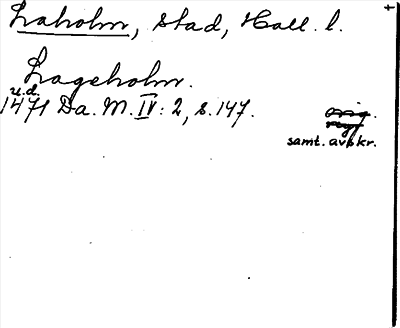 Laholm, stad, Hall. l.
Lageholm.
u.d.
1471 Da. M. IV: 2, s. 147.
orig.
samt. avskr.